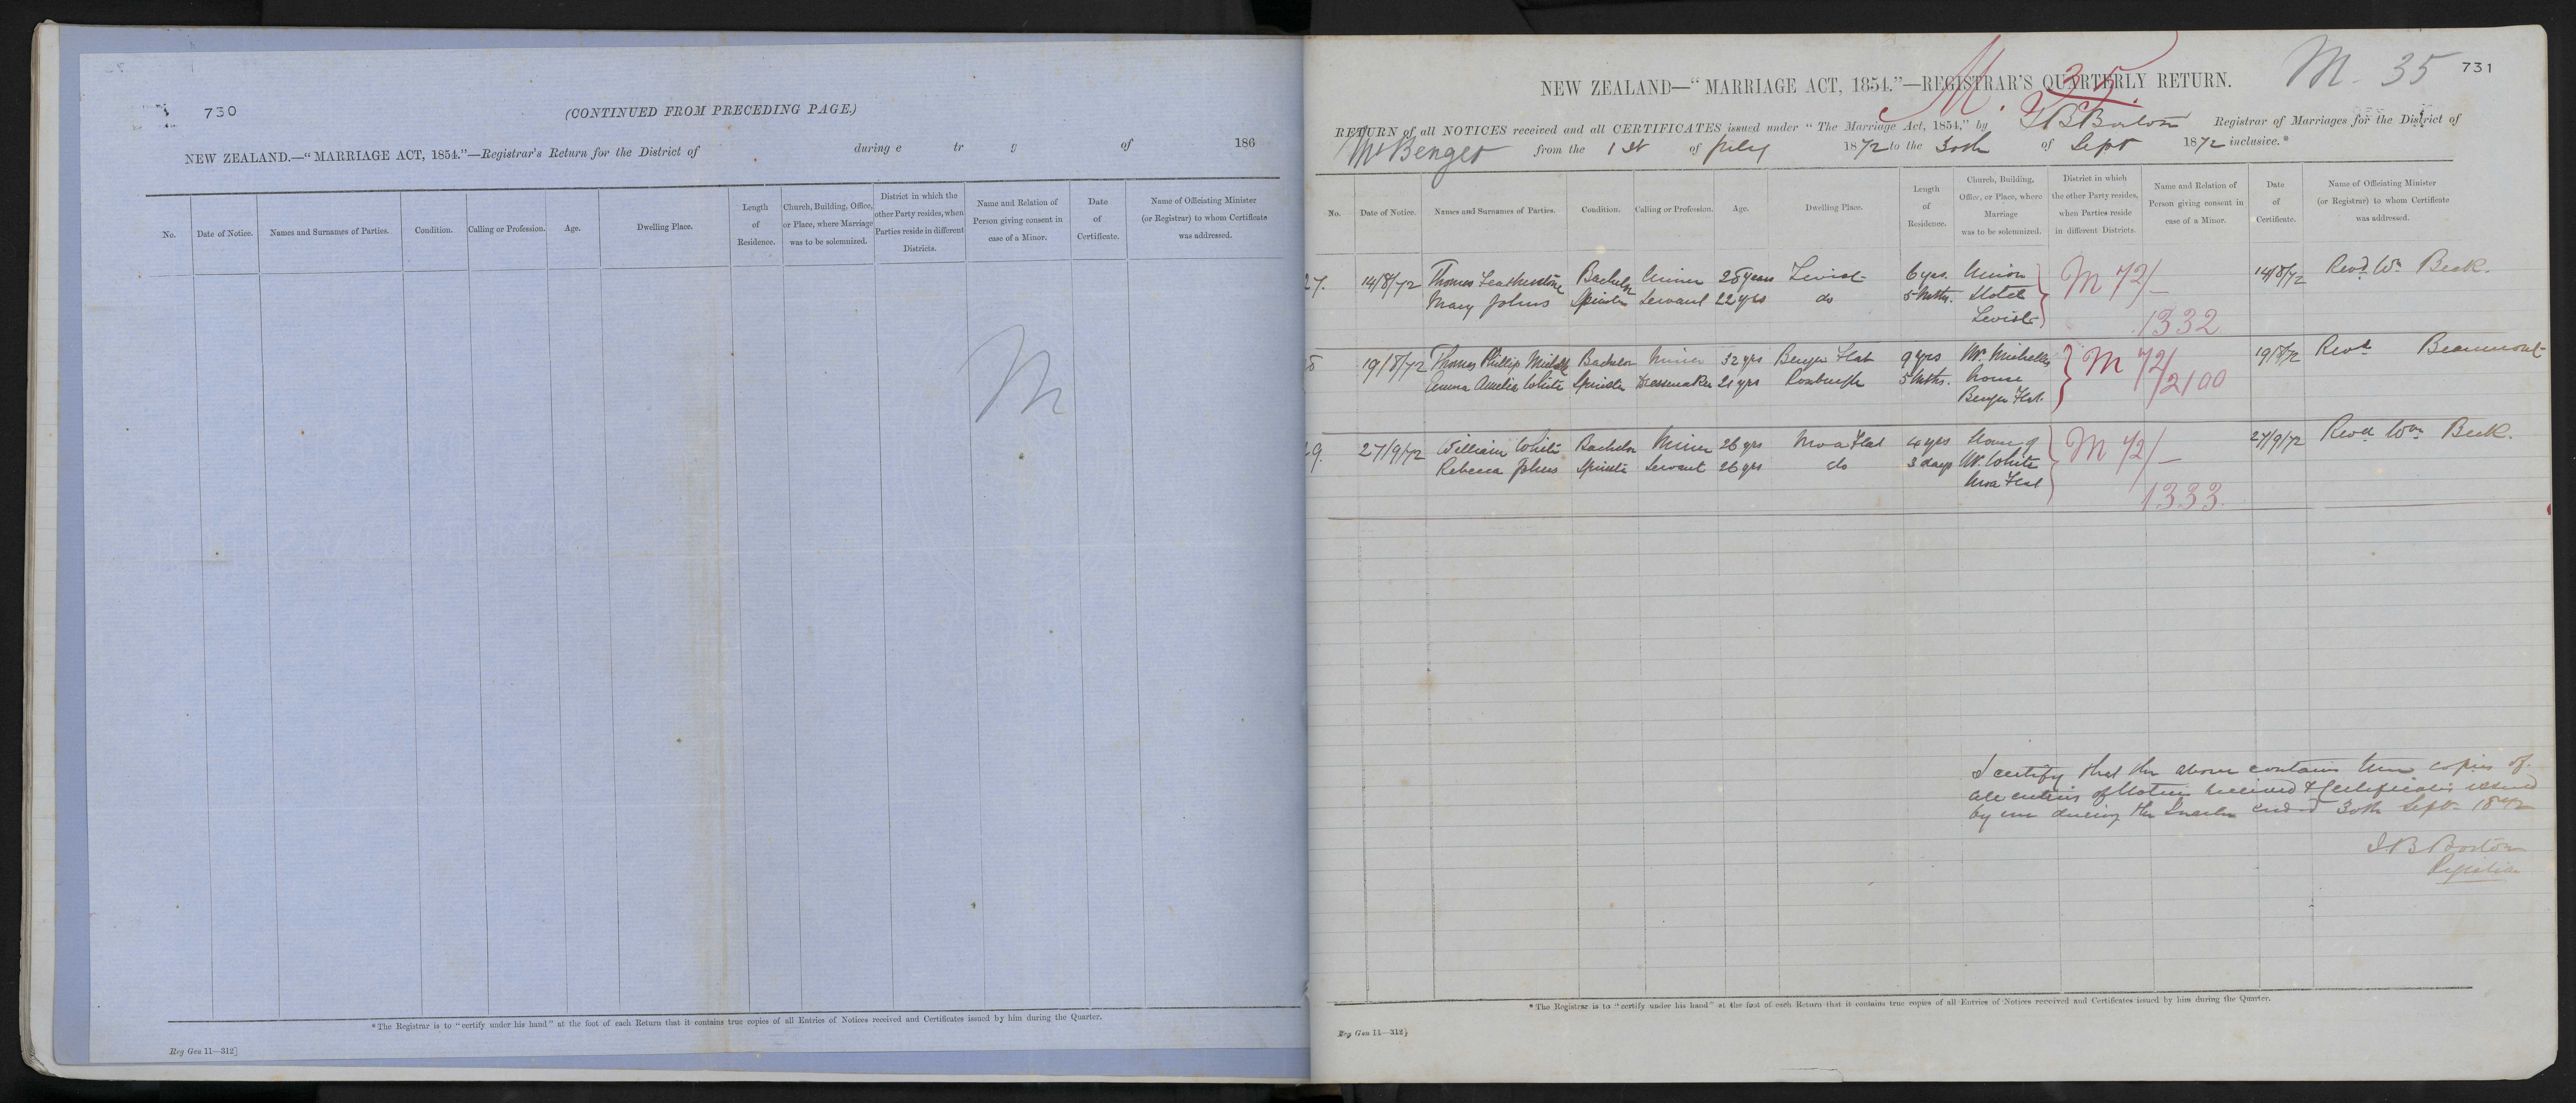 730
(CONTINUED FROM PRECEDING PAGE.)
NEW ZEALAND.—“MARRIAGE ACT, 1854.”—Registrar's Return for the District of during e tr g of 186
No. Date of Notice. Names and Surnames of Parties. Condition. Calling or Profession. Age. Dwelling Place. Length of Residence. Church, Building, Office, or Place, where Marriage was to be solemnized. District in which the other Party resides, when Parties reside in different Districts. Name and Relation of Person giving consent in case of a Minor. Date of Certificate. Name of Officiating Minister (or Registrar) to whom Certificate was addressed.
M
*The Registrar is to “certify under his hand” at the foot of each Return that it contains true copies of all Entries of Notices received and Certificates issued by him during the Quarter.
Reg Gen 11—312]
M. 35
M. 35 731
NEW ZEALAND—“MARRIAGE ACT, 1854.”—REGISTRAR'S QUARTERLY RETURN.
RETURN of all NOTICES received and all CERTIFICATES issued under “The Marriage Act, 1854,” by Borton Registrar of Marriages for the District of
Mt Benger from the 1st of July 1872 to the 30th of Sept 1872 inclusive.*
No. Date of Notice. Names and Surnames of Parties. Condition. Calling or Profession. Age. Dwelling Place. Length of Residence. Church, Building, Office, or Place, where Marriage was to be solemnized. District in which the other Party resides, when Parties reside in different Districts. Name and Relation of Person giving consent in case of a Minor. Date of Certificate. Name of Officiating Minister (or Registrar) to whom Certificate was addressed.
27. 14/8/72 Thomas Featherstone Bachelor Miner 28 years 6 yrs. Union M 72/ 14/8/72 Revd Wm Beck.
Mary Johns Spinster Servant 22 yrs do 5 Mths. Hotel
1332
8 19/8/72 Thomas Phillip Bachelor Miner 32 yrs Benger Flat 9 yrs Mr. M 72/ 19/8/72 Revd Beaumont
Emma Amelia White Spinster Dressmaker 21 yrs Roxburgh 5 Mths. house /2100
Benger Flat.
29. 27/9/72 William White Bachelor Miner 26 yrs Moa Flat 4 yrs House of M 72/ 27/9/72 Revd Wm Beck.
Rebecca Johns Spinster Servant 26 yrs do 3 days Mr. White
Moa Flat 1333.
I certify that the above contains true copies of
all entries of Notices received & Certificates issued
by me during the Quarter ended 30th Sept. 1872
J.B Borton
Registrar
*The Registrar is to “certify under his hand” at the foot of each Return that it contains true copies of all Entries of Notices received and Certificates issued by him during the Quarter.
Reg Gen 11—312]